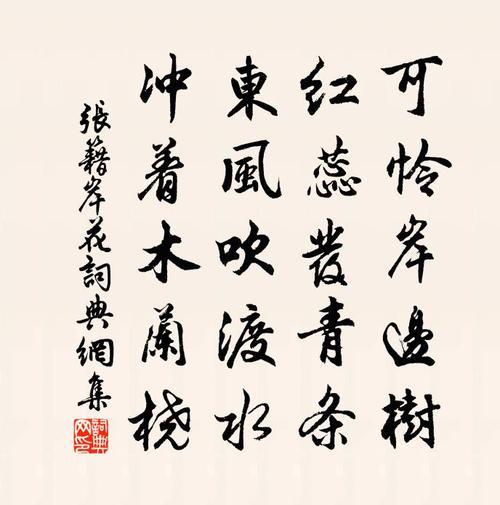 可怜岸邊樹
红蕊發青条
東風吹渡水
冲着木蘭桡
張籍岸花詞典網集